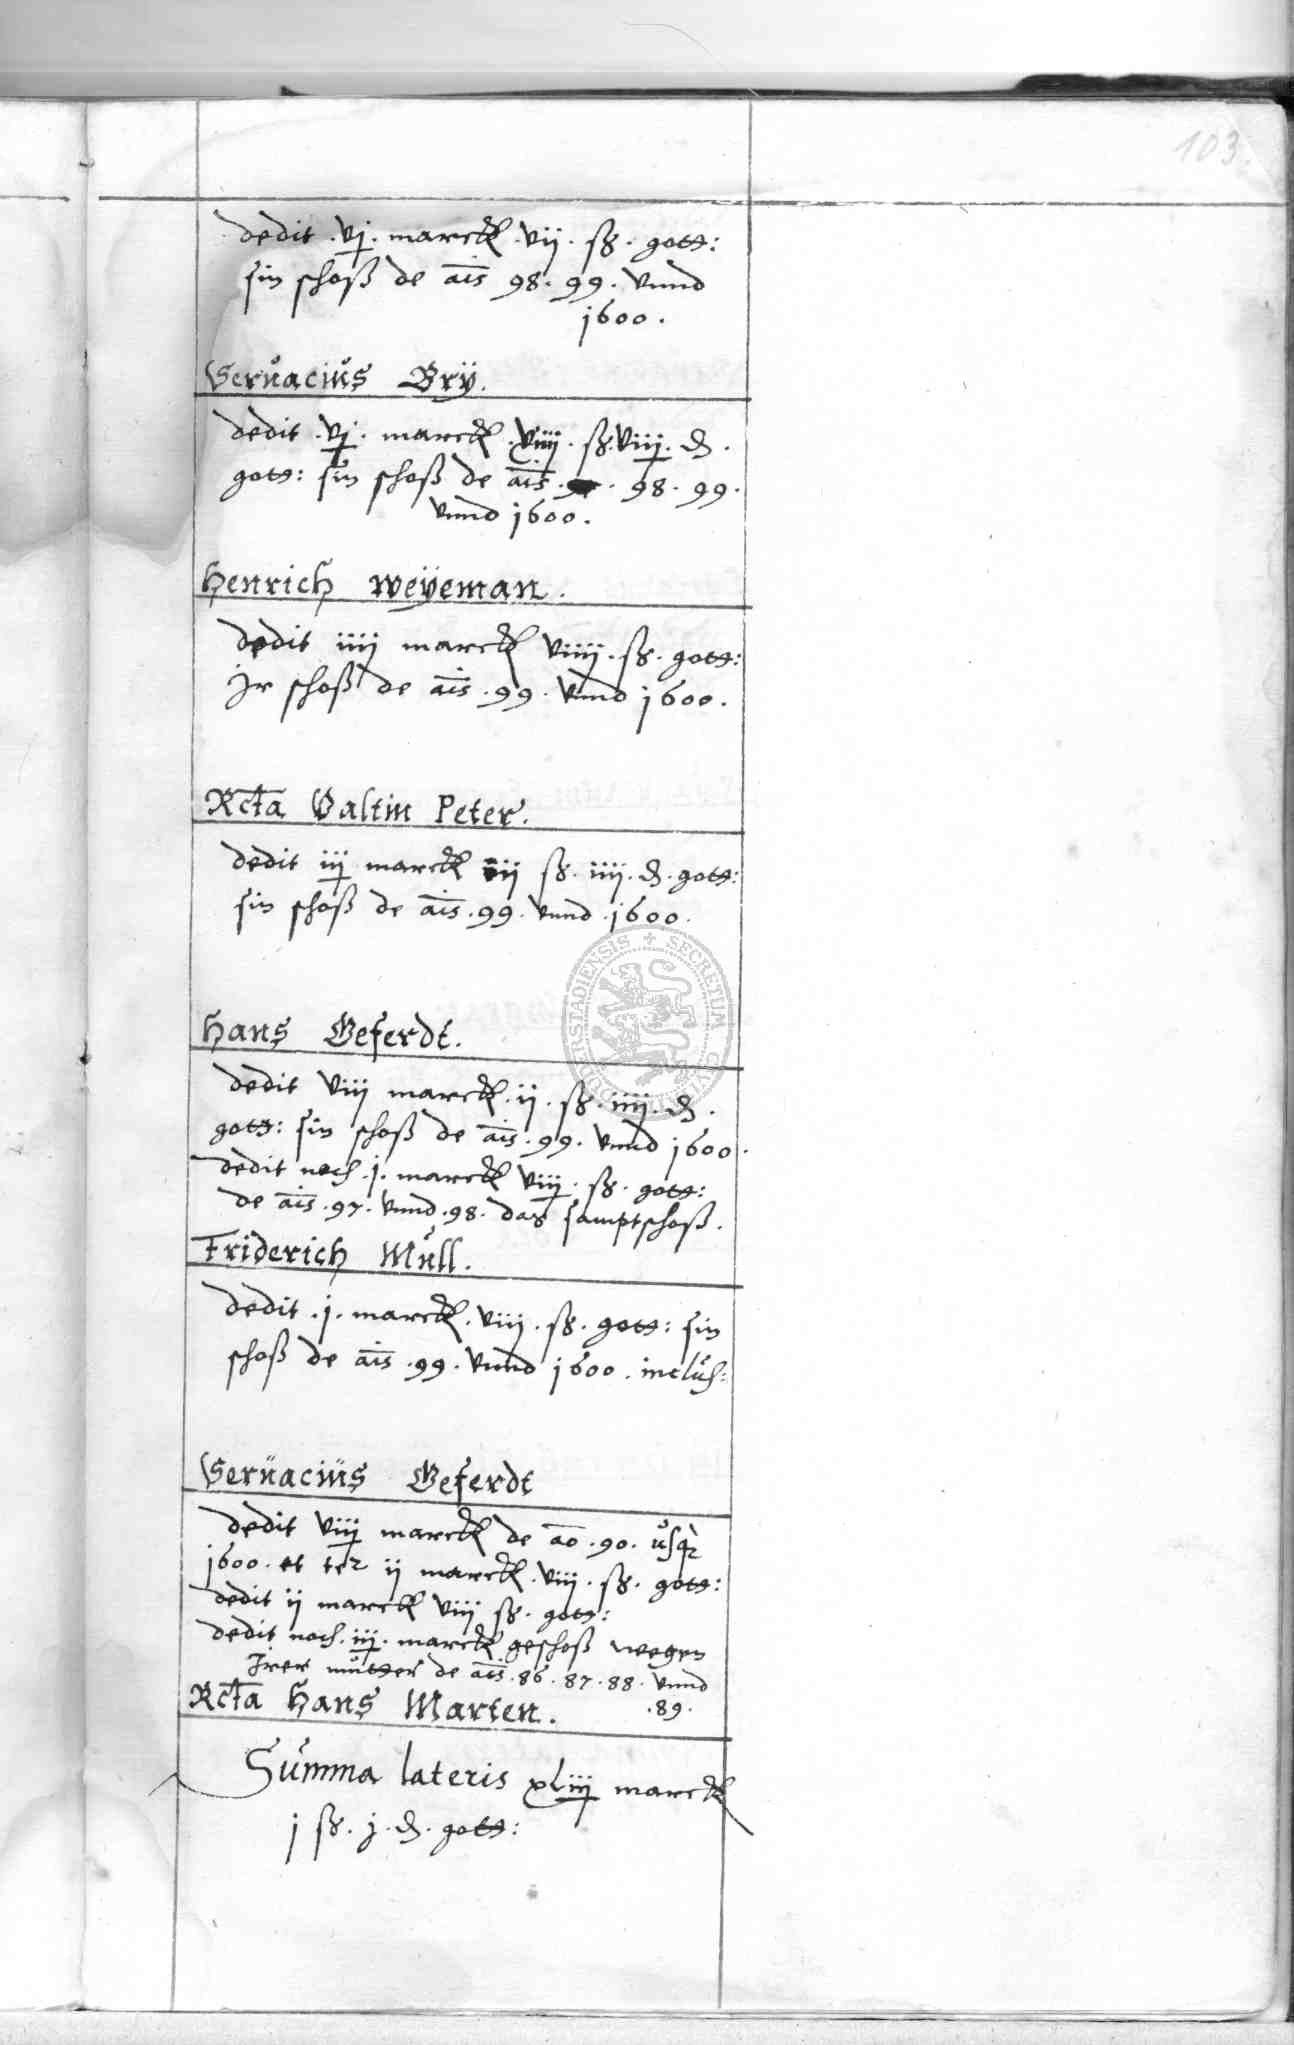 103.
dedit .vj. marck .vij. ß. gotts:
sin schoß de ais 98. 99. vnnd
1600.
Seruacius Bry.
dedit .vj. marck .viiij. ß. viij. d.
gotts: sin schoß de ais . 98. 99.
vnnd 1600.
Henrich Weÿeman.
dedit iiij marck viiij. ß. gotts:
Jr schoß de ais .99. vnnd 1600.
Rcta Valtin Peter.
dedit iij marck iij ß. iiij. d. gotts:
sin schoß de ais .99. vnnd .1600.
SECRETUM CIVITATIS DUDERSTADIENSIS
Hans Geferdt.
dedit viij marck .ij. ß. iiij. d.
gotts: sin schoß de ais .99. vnnd 1600.
dedit noch .j. marck viij. ß. gotts:
de ais .97. vnnd .98. das samptschoß.
Friderich Mull.
dedit .j. marck .viij. ß. gotts: sin
schoß de ais .99. vnnd 1600. inclus:
Seruacius Geferdt
dedit viij marck de ao .90. usq
1600. et ter ij marck .viij. ß. gotts:
dedit ij marck viij ß. gotts:
dedit noch .iij. marck geschoß wegen
Jrer mutter de ais .86. 87. 88. vnnd
.89.
Rcta Hans Marten.
Summa lateris xliij marck
j ß. j. d. gotts: